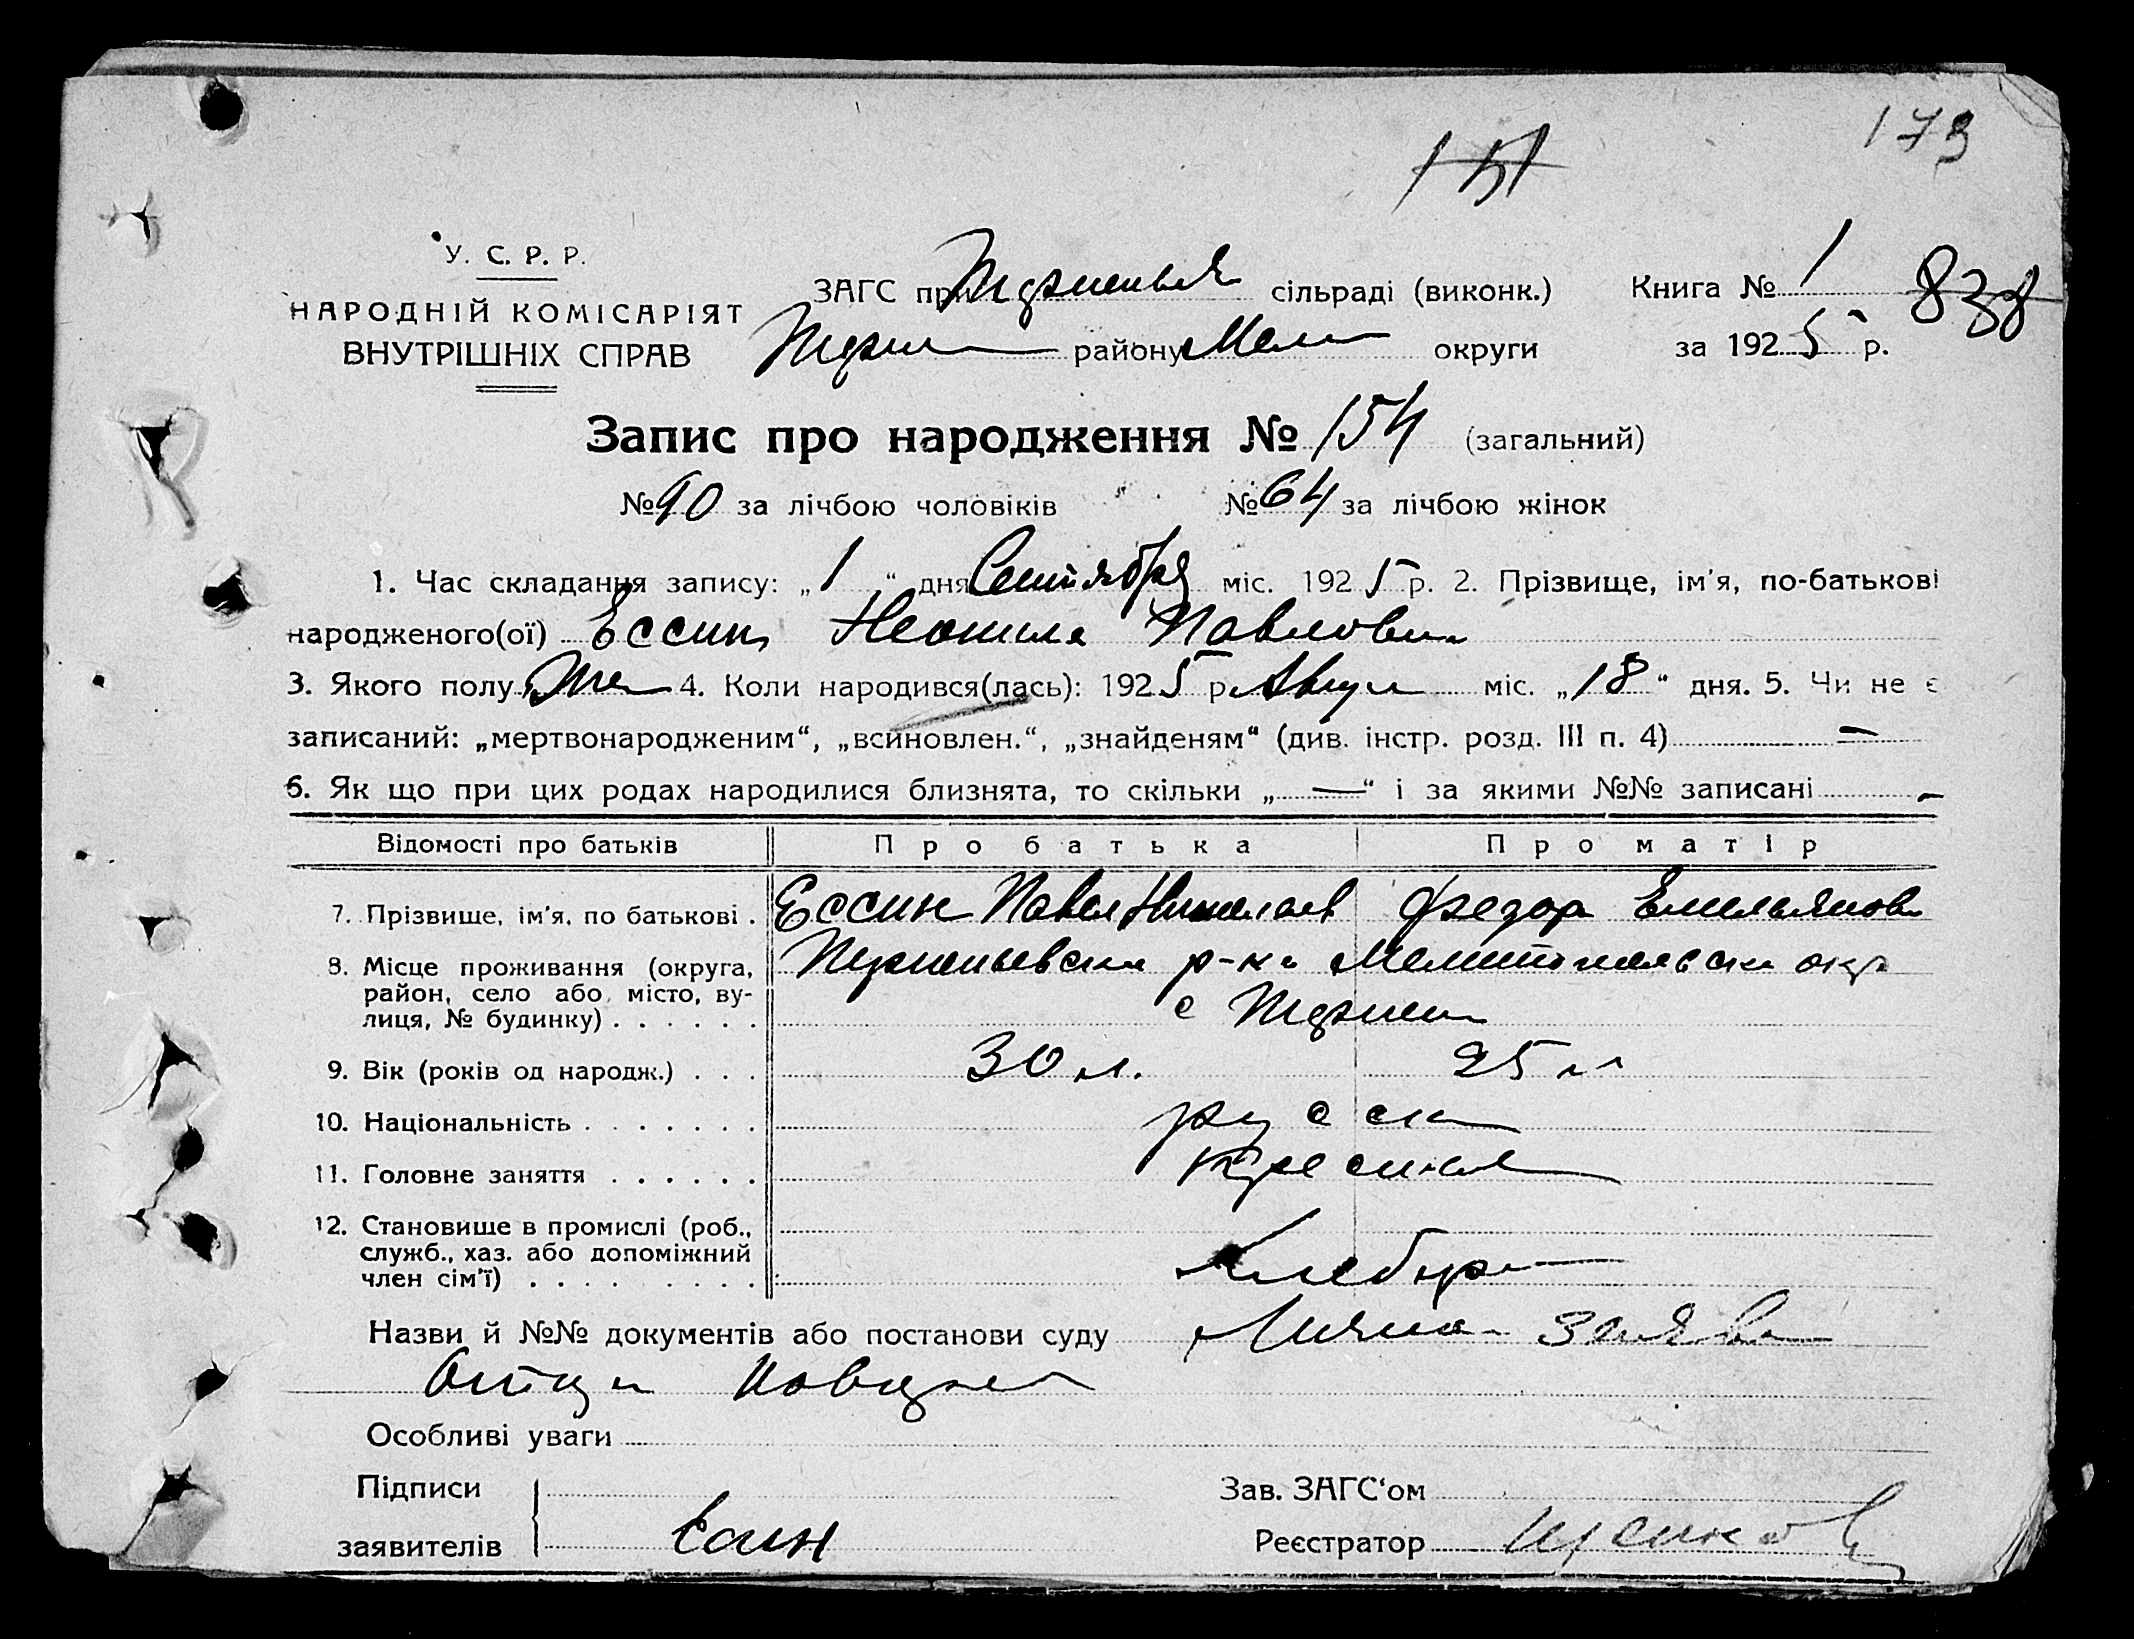 173
У. С. Р. Р.
НАРОДНІЙ КОМІСАРІЯТ
ВНУТРІШНІХ СПРАВ
ЗАГС при сільраді (виконк.) Книга № 1 838
району Мели округи за 1925 р.
Запис про народження № 154 (загальний)
№ 90 за лічбою чоловіків № 64 за лічбою жінок
1. Час складання запису: „1“ дня Сентября міс. 1925 р. 2. Прізвище, ім'я, по-батькові
народженого(ої) Ессин Неонила Павловн
3. Якого полу Же 4. Коли народився(лась): 1925 р. Авгус міс. „18“ дня. 5. Чи не є
записаний: „мертвонародженим“, „всиновлен.“, „знайденям“ (див. інстр. розд. III п. 4) —
6. Як що при цих родах народилися близнята, то скільки „—“ і за якими №№ записані —
Відомості про батьків Про батька Про матір
7. Прізвище, ім'я, по батькові . Ессин Павел Николаев Федора Емельянов
8. Місце проживання (округа, р-на Мелитопольск окр
район, село або місто, ву-
лиця, № будинку) . . . . . . с
9. Вік (років од народж.) . . . 30 л. 25 л
10. Національність . . . . . . . русск
11. Головне заняття . . . . . .
12. Становище в промислі (роб.,
служб., хаз. або допоміжний
член сім'ї) . . . . . . . . . Хлебор
Назви й №№ документів або постанови суду Лична заяв
Отца
Особливі уваги
Підписи Зав. ЗАГС'ом
заявителів Есин Реєстратор